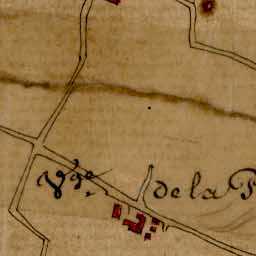 Vge de la P